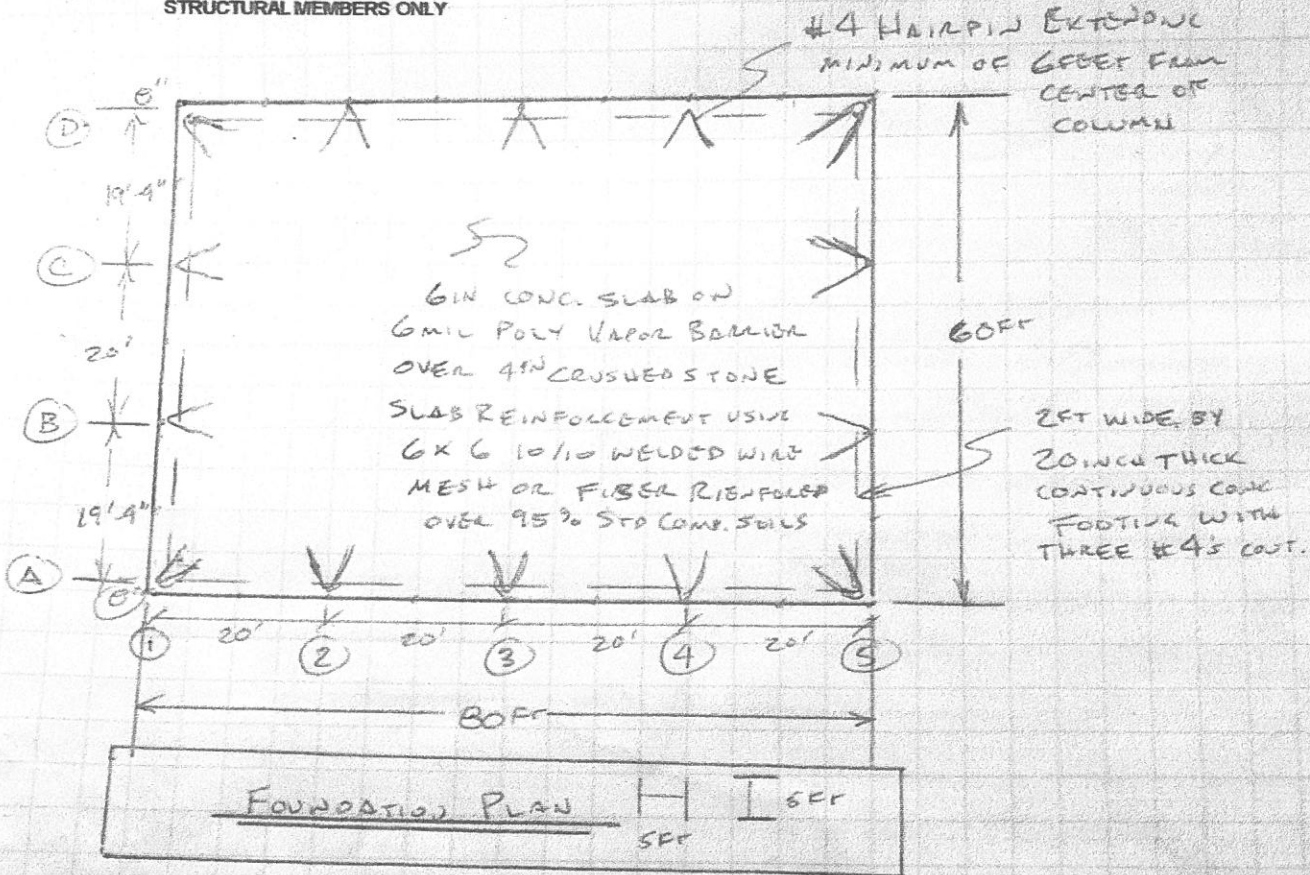 STRUCTURAL MEMBERS ONLY
#4 HAIRPIN EXTENDING
MINIMUM OF 6FEET FROM
CENTER OF
COLUMN
8"
D
19'-4"
C
20'
B
19'4"
A
8"
6IN CONC. SLAB ON
6MIL POLY VAPOR BARRIER
OVER 4IN CRUSHED STONE
SLAB REINFORCEMENT USING
6 X 6 10/10 WELDED WIRE
MESH OR FIBER RIENFORCED
OVER 95% STD COMP. SOILS
60FT
2FT WIDE BY
20 INCH THICK
CONTINUOUS CONC
FOOTING WITH
THREE #4'S CONT.
1 20' 2 20' 3 20' 4 20' 5
80FT
FOUNDATION PLAN
5FT
5FT